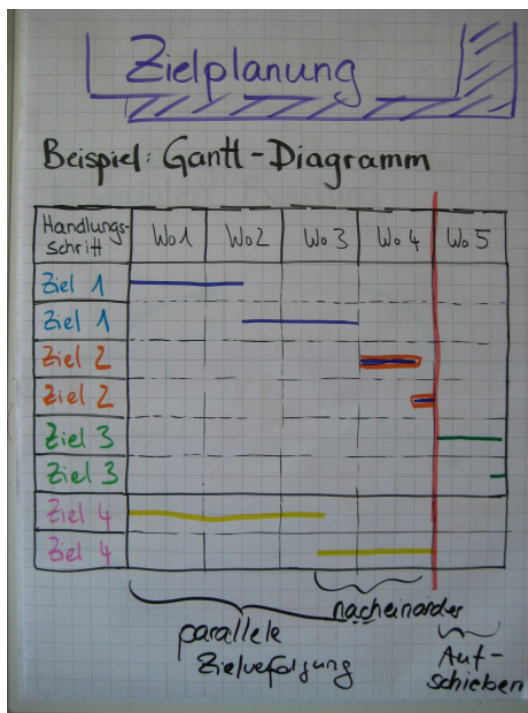 Zielplanung
Beispiel: Gantt-Diagramm
Handlungs-
schritt
Wo1 Wo2 Wo3 Wo4 Wo5
Ziel 1
Ziel 1
Ziel 2
Ziel 2
Ziel 3
Ziel 3
Ziel 4
Ziel 4
nacheinander
parallele
Zielverfolgung
Auf-
schieben